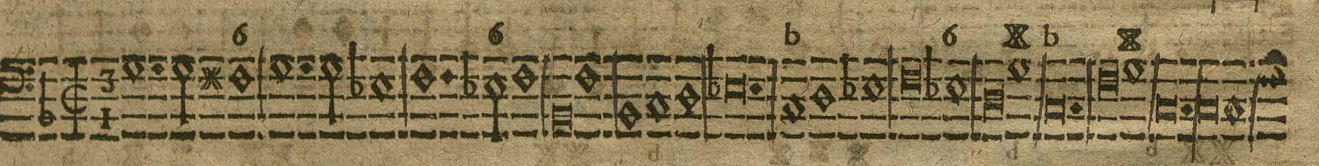 6 6 b 6 b
3
1